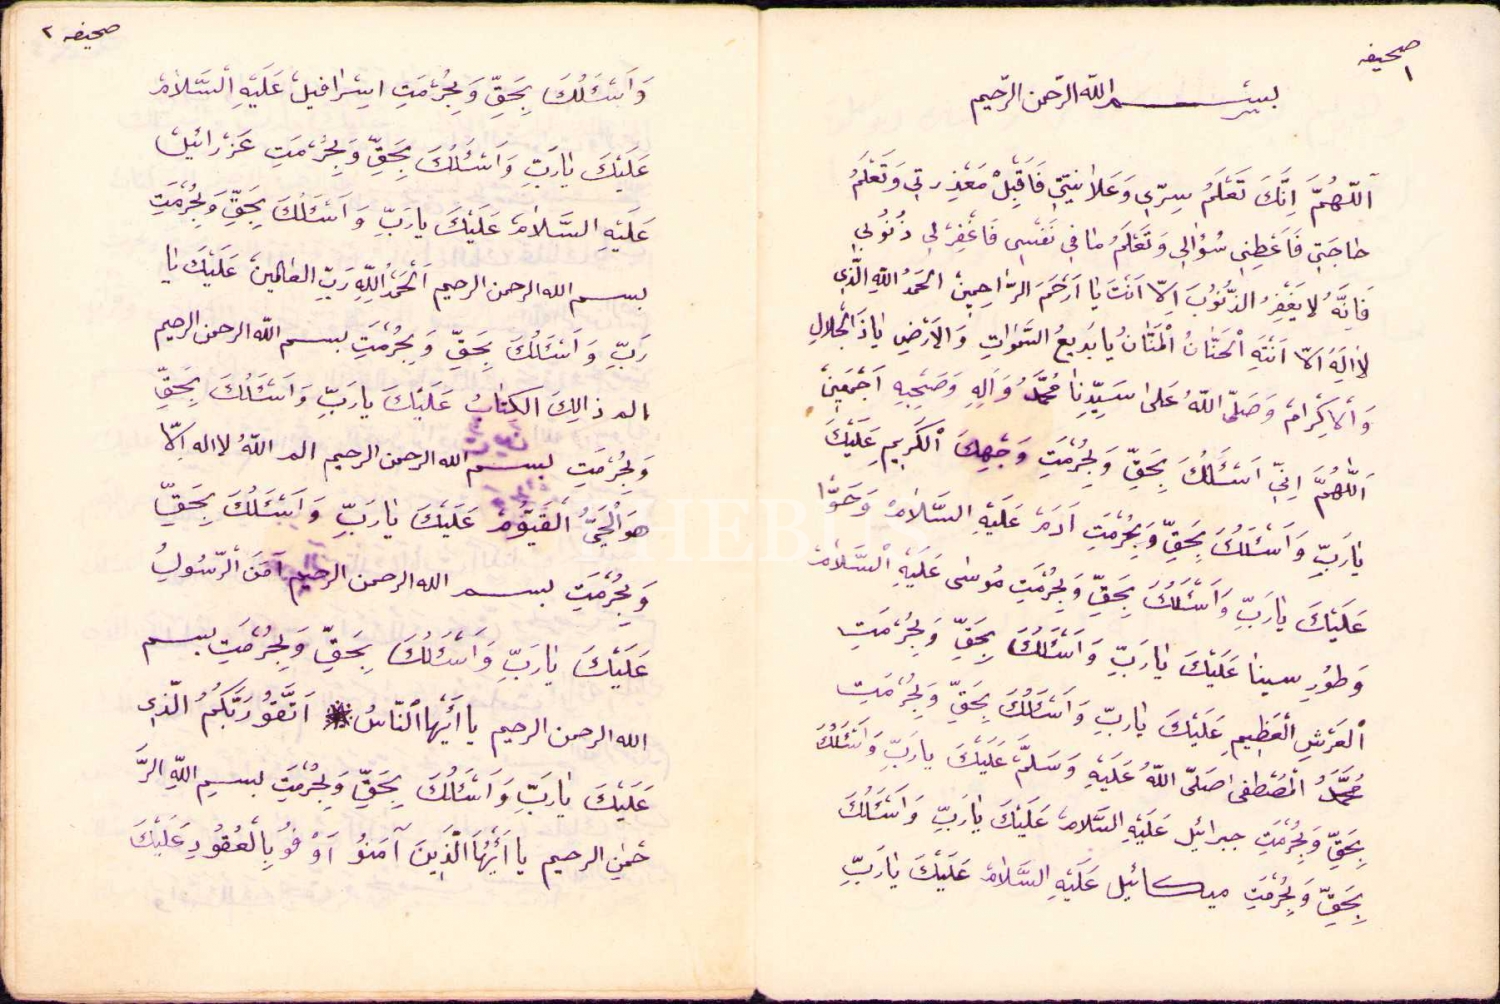 صحيفه ١
بسم الله الرّحمن الرّحيم
اَللّهُمَّ اِنَّكَ تَعْلَمُ سِرّي وَعَلانِيَتي فَاَقْبِلْ مَعْذِرتي وَتَعْلَمُ
حاجَتي فَاَعْطِني سُؤالي وَتَعْلَمُ ما في نَفْسي فَاغْفِرْ لي ذُنُوبي
فَاِنَّهُ لا يَغْفِرُ الذُّنُوبَ اِلّا اَنْتَ يا اَرْحَمَ الرّاحِمينْ الحَمْدُ اللّهِ الَّذي
لا اِلَهُ اِلّا اَنْتَهِ الْحَنّانُ الْمَنّانُ يا بَديعُ السَّمٰواتِ وَالاَرْضِ يا ذَالْجَلالِ
وَالاِكْرامْ وَصَلّى اللّهُ عَلى سَيِّدِنا مُحَمَّدُ وَالِهِ وَصَحْبِهِ اَجْمَعينْ
اَللّهُمَّ اِنّي اَسْئَلُكَ بِحَقِّ وَبِحُرْمَتِ وَجْهِكَ الْكَريمِ عَلَيْكَ
يارَبِّ وَاَسْئَلُكَ بِحَقِّ وَبِحُرْمَتِ آدَمْ عَلَيْهِ السَّلامْ وَحَوّا
عَلَيْكَ يارَبِّ وَاَسْئَلُكَ بِحَقِّ وَبِحُرْمَتِ مُوسٰى عَلَيْهِ السَّلامْ
وَطُورِ سينا عَلَيْكَ يارَبِّ وَاَسْئَلُكَ بِحَقِّ وَبِحُرْمَتِ
الْعَرْشِ الْعَظيمِ عَلَيْكَ يارَبِّ وَاَسْئَلُكَ بِحَقِّ وَبِحُرْمَتِ
مُحَمَّدُ الْمُصْطَفى صَلّى اللّهُ عَلَيْهِ وَسَلَّمْ عَلَيْكَ يارَبِّ وَاَسْئَلُكَ
بِحَقِّ وَبِحُرْمَتِ جبرائيل عَلَيْهِ السَّلامْ عَلَيْكَ يارَبِّ وَاَسْئَلُكَ
بِحَقِّ وَبِحُرْمَتِ ميكائيل عَلَيْهِ السَّلامْ عَلَيْكَ يارَبِّ
صحيفه ٢
وَاَسْئَلُكَ بِحَقِّ وَبِحُرْمَتِ اِسْرافيلْ عَلَيْهِ السَّلامْ
عَلَيْكَ يارَبِّ وَاَسْئَلُكَ بِحَقِّ وَبِحُرْمَتِ عَزْرائيلْ
عَلَيْهِ السَّلامْ عَلَيْكَ يارَبِّ وَاَسْئَلُكَ بِحَقِّ وَبِحُرْمَتِ
بسم الله الرحمن الرحيم اَلْحَمْدُ لِلّهِ رَبِّ العالمينْ عَلَيْكَ يا
رَبِّ وَاَسْئَلُكَ بِحَقِّ وَبِحُرْمَتِ بسم الله الرحمن الرحيم
الم ذالِكَ الكتابُ عَلَيْكَ يارَبِّ وَاَسْئَلُكَ بِحَقِّ
وَبِحُرْمَتِ بسم الله الرحمن الرحيم الم اللّهُ لااله اِلّا
هوَالْحَيُّ الْقَيُّومْ عَلَيْكَ يارَبِّ وَاَسْئَلُكَ بِحَقِّ
وَبِحُرْمَتِ بسم الله الرحمن الرحيم آمَنَ الرّسُولُ
عَلَيْكَ يارَبِّ وَاَسْئَلُكَ بِحَقِّ وَبِحُرْمَتِ بسم
الله الرحمن الرحيم يا اَيُّهَا النّاسُ اَتَّقُو رَبَّكُمُ الّذي
عَلَيْكَ يارَبِّ وَاَسْئَلُكَ بِحَقِّ وَبِحُرْمَتِ بسمِ اللّهِ الرَّ
حْمٰنِ الرحيم يا اَيُّهَا الَّذينَ آمَنُو اَوْفُو بِالْعُقُودِ عَلَيْكَ